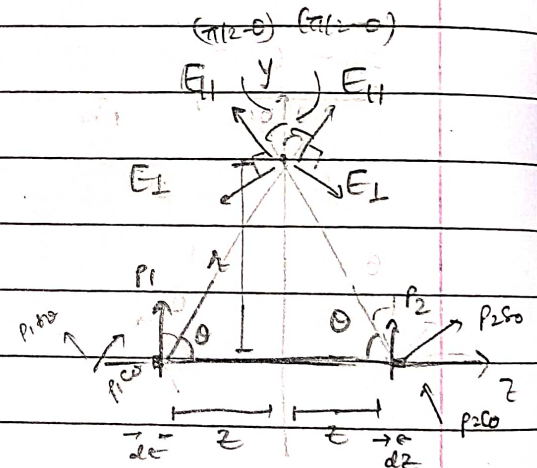 (π/2-θ) (π/2-θ)
E∥ y E∥
E⊥ E⊥
r
P1 θ θ P2
P1sθ P1cθ P2sθ
z
P2cθ
z z
dz dz